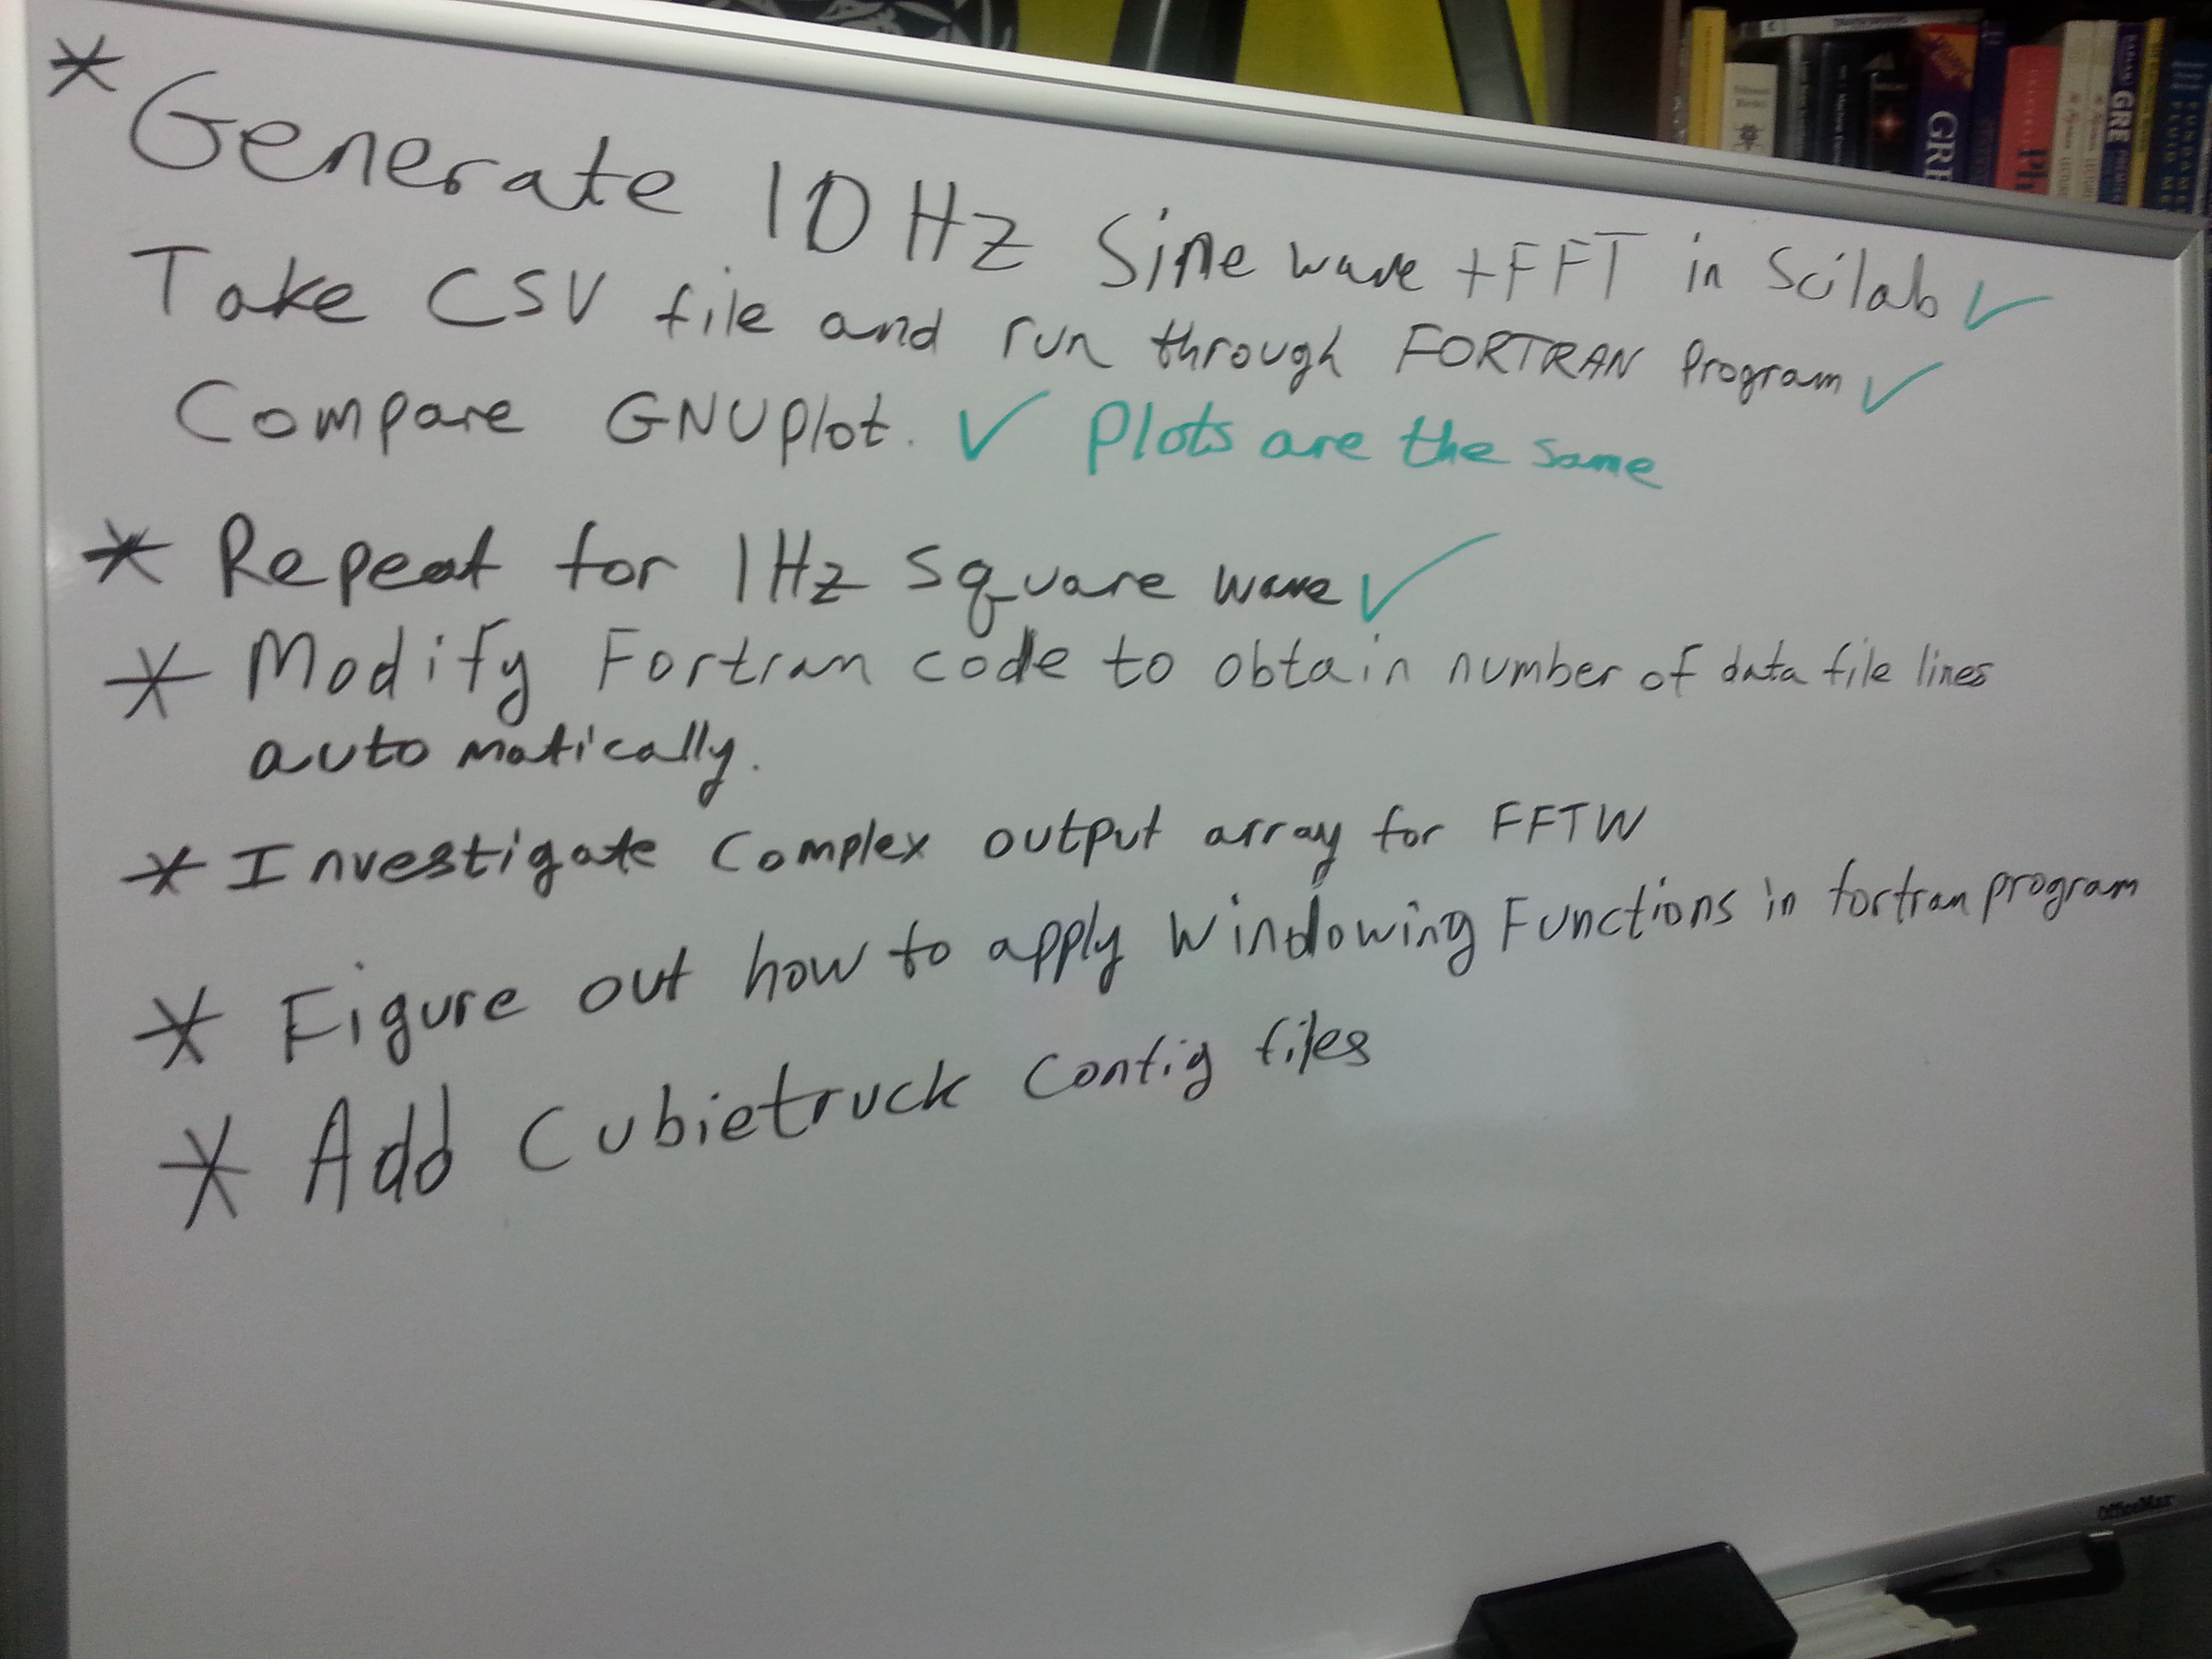 * Generate 10 Hz Sine wave + FFT in Scilab ✓
Take CSV file and run through FORTRAN Program ✓
Compare GNUplot. ✓ Plots are the same
* Repeat for 1Hz square wave ✓
* Modify Fortran code to obtain number of data file lines
automatically.
* Investigate Complex output array for FFTW
* Figure out how to apply Windowing Functions in fortran program
* Add Cubietruck Config files
GRE
Ph
GRE
OfficeMax